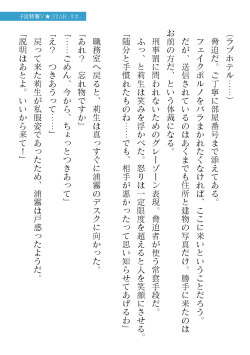 子宮特警V★STAR.リカ
（ラブホテル……）
脅迫だ。ご丁寧に部屋番号まで添えてある。
フェイクポルノをバラまかれたくなければ、ここに来いということだろう。
だが、送信されているのはあくまでも住所と建物の写真だけ。勝手に来たのは
お前の方だ、という体裁になる。
刑事罰に問われないためのグレーゾーン表現。脅迫者が使う常套手段だ。
ふっ、と莉生は笑みを浮かべた。怒りは一定限度を超えると人を笑顔にさせる。
（随分と手慣れたものね。でも、相手が悪かったって思い知らせてあげるわ）
職務室へ戻ると、莉生は真っすぐに浦霧のデスクに向かった。
「あれ？　忘れ物ですか」
「……ごめん、今から、ちょっとつきあって」
「え？　つきあうって……！」
戻って来た莉生が私服姿であったため、浦霧は戸惑ったようだ。
「説明はあとよ。いいから来て！」